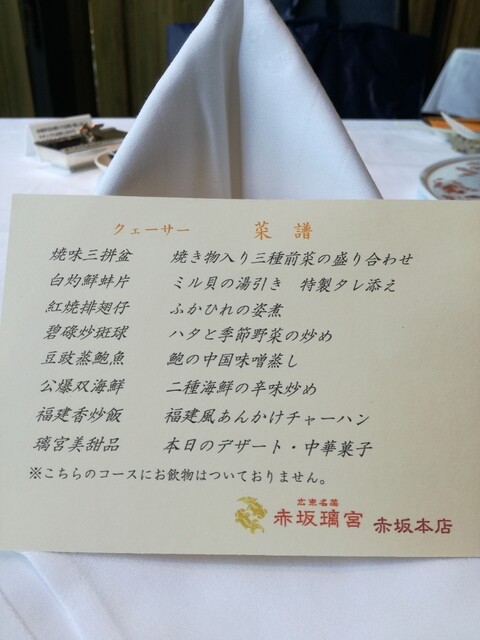 クェーサー 菜 譜
焼味三拼盆 焼き物入り三種前菜の盛り合わせ
白灼鮮蚌片 ミル貝の湯引き 特製タレ添え
紅焼排翅仔 ふかひれの姿煮
碧碌炒斑球 ハタと季節野菜の炒め
豆豉蒸鮑魚 鮑の中国味噌蒸し
公爆双海鮮 二種海鮮の辛味炒め
福建香炒飯 福建風あんかけチャーハン
璃宮美甜品 本日のデザート・中華菓子
※こちらのコースにお飲物はついておりません。
広東名菜
赤坂璃宮 赤坂本店